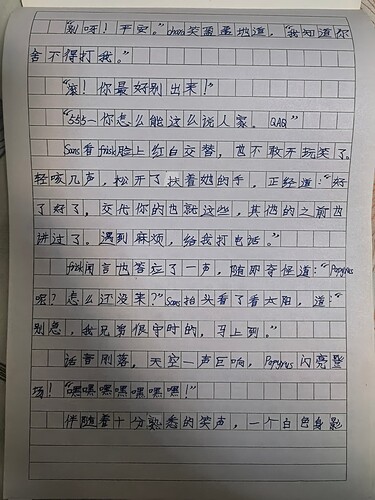 “别呀！平安。”chara笑盈盈地道，“我知道你
舍不得打我。”
“滚！你最好别出来！”
“555—你怎么能这么说人家。QAQ”
Sans看frisk脸上红白交替，也不敢开玩笑了。
轻咳几声，松开了扶着她的手，正经道：“好
了好了，交代你的也就这些，其他的之前也
讲过了。遇到麻烦，给我打电话。”
frisk闻言也答应了一声，随即奇怪道：“Papyrus
呢？怎么还没来？”Sans抬头看了看太阳，道：“
别急，我兄弟很守时的，马上到。”
话音刚落，天空一声巨响，Papyrus闪亮登
场！“嘿嘿嘿嘿嘿嘿嘿！”
伴随着十分熟悉的笑声，一个白色身影